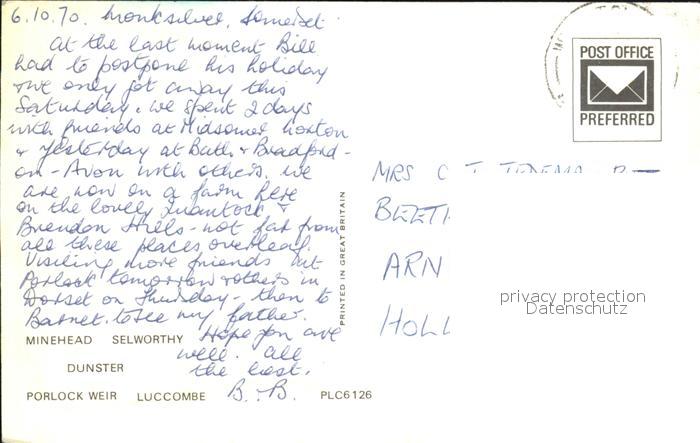 6.10.70. Monksilver, Somerset.
At the last moment Bill
had to postpone his holiday
& we only got away this
Saturday. We spent 2 days
with friends at Midsomer Norton
& yesterday at Bath & Bradford-
on-Avon with others. We
are now on a farm here
on the lovely Quantock &
Brendon Hills - not far from
all these places overleaf.
Visiting more friends
Porlock tomorrow & others in
Dorset on Thursday - then to
Barnet. to see my father.
Hope you are
well. all
the best.
B. B.
MINEHEAD SELWORTHY
DUNSTER
PORLOCK WEIR LUCCOMBE PLC6126
PRINTED IN GREAT BRITAIN
POST OFFICE
PREFERRED
MRS C
BEETH
ARN
HOLL
privacy protection
Datenschutz